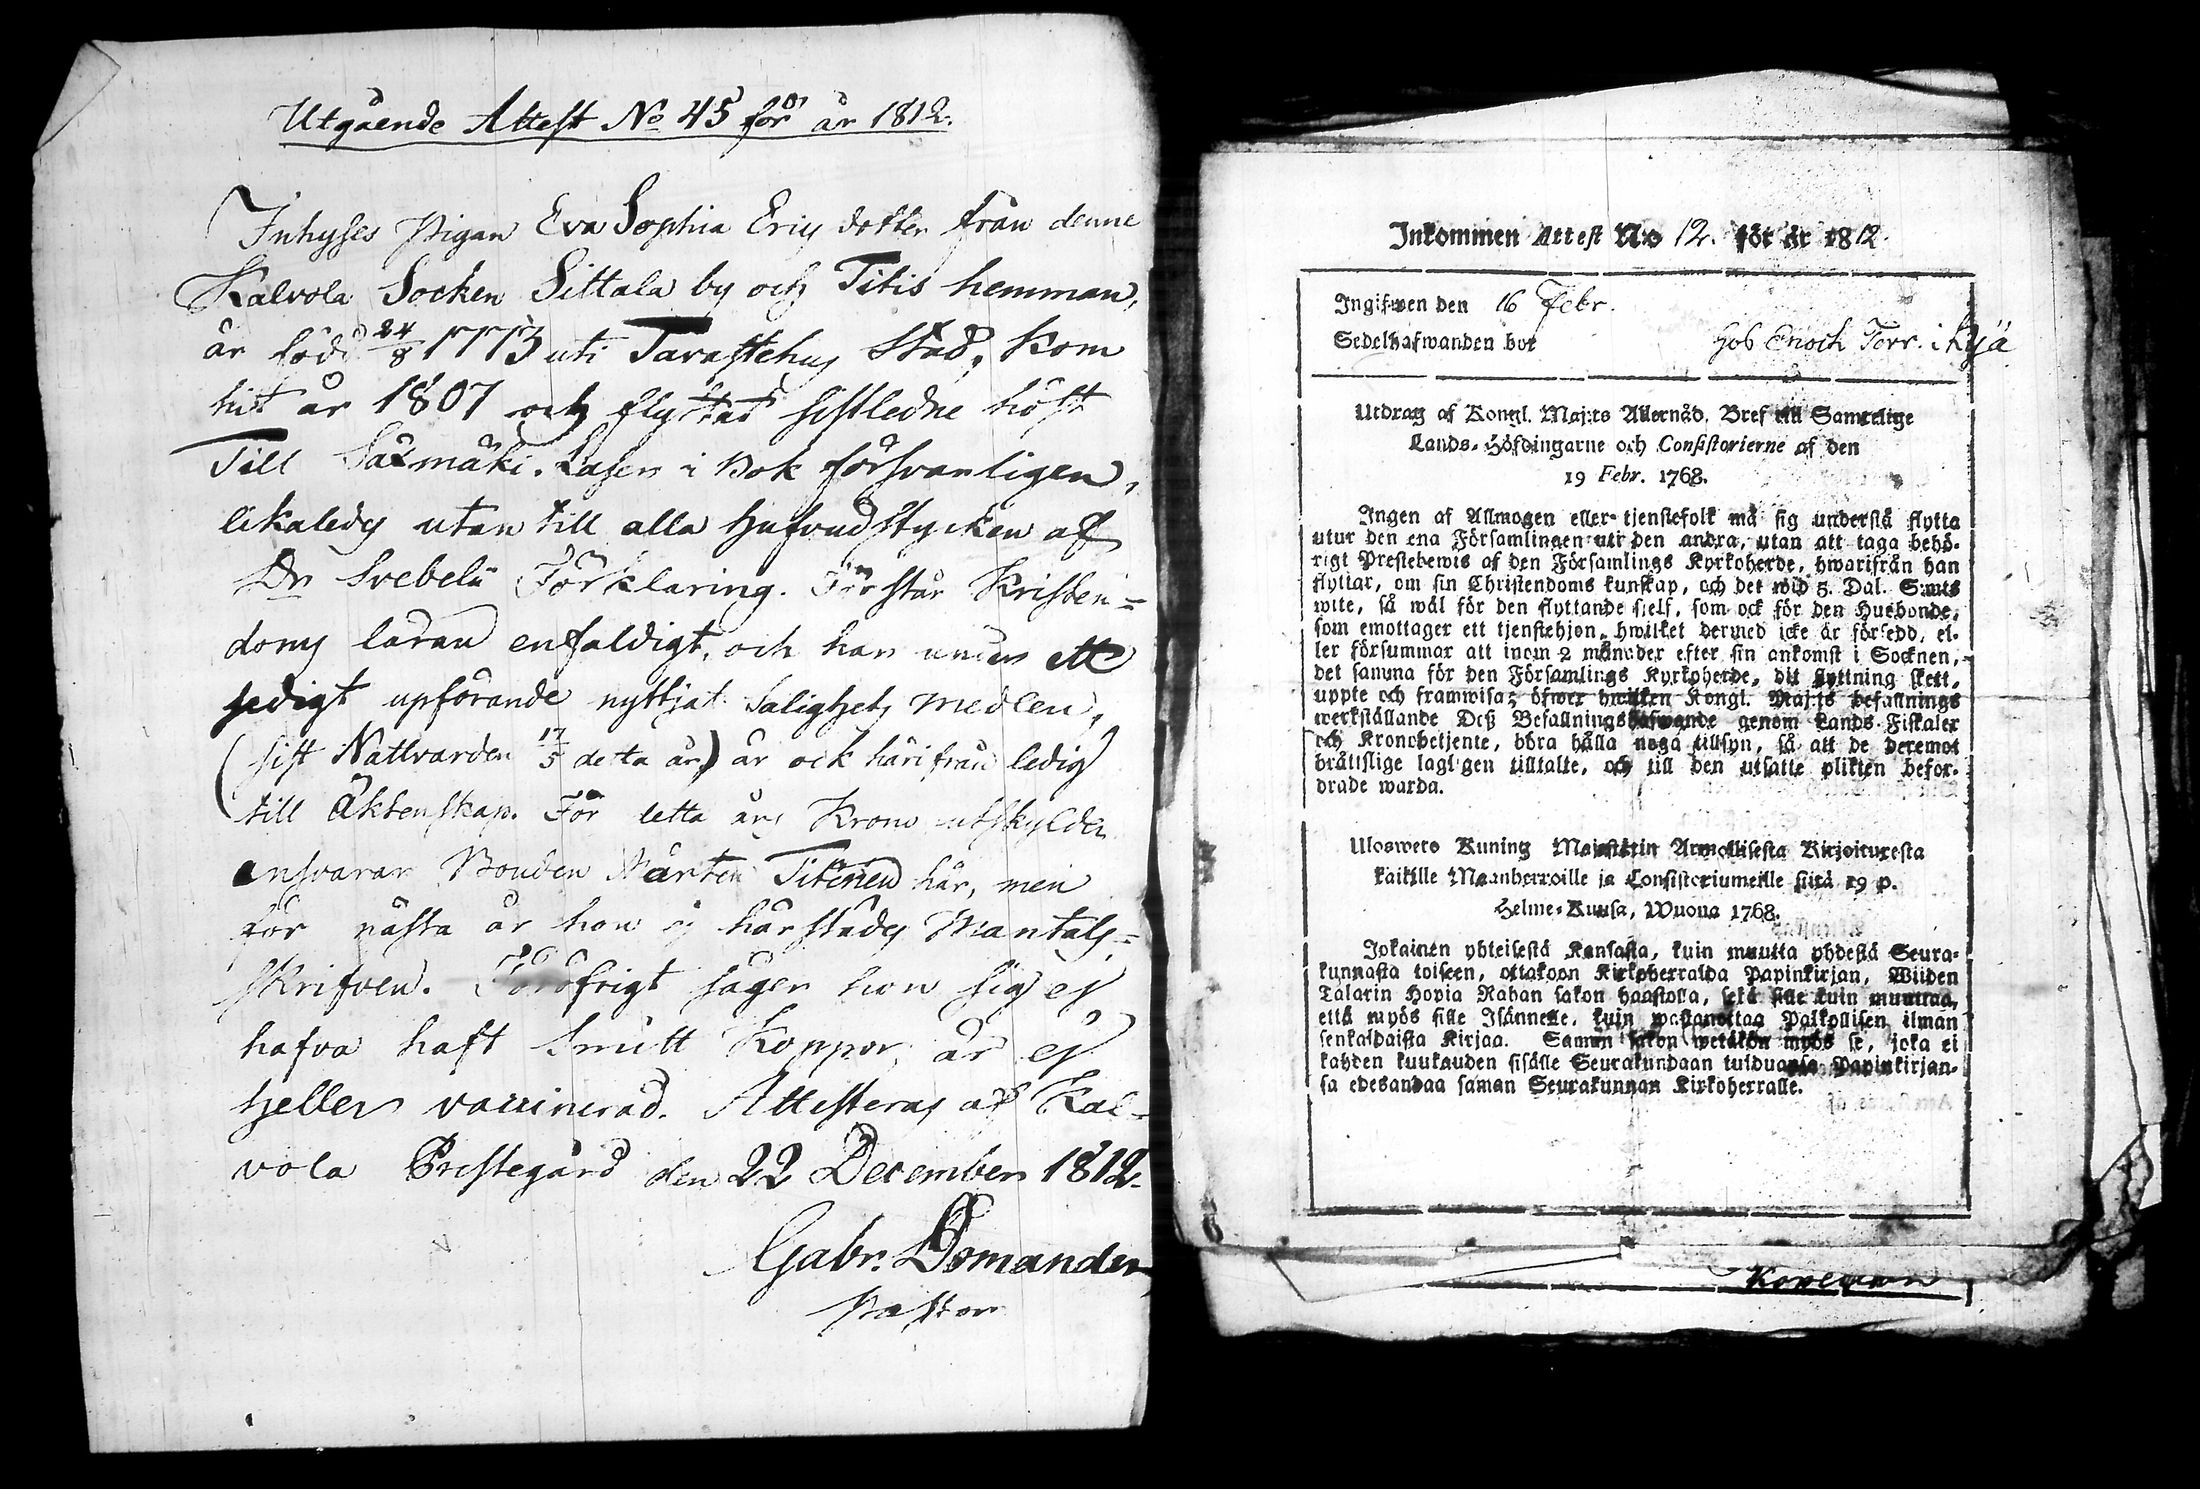 Utgående Attest No 45 för år 1812.
Inhyses Pigan Eva Sophia Ericsdotter från denne
Kalvola Socken Sittala by och Titis hemman,
är född 24/8 1773 uti Tavastehus Stad, Kom
hit år 1807 och flyttad sistledne höst
Till Säxmäki. Läser i Bok försvarligen,
likaledes utan till alla Hufvudstycken af
Dr Svebelii Förklaring. Förstår Kristen=
doms läran enfaldigt, och har under ett
sedigt upförande nyttjat Salighets medlen,
(sist Nattvarden 17/5 detta år) är ock härifrån ledig
till Äktenskap. För detta års Krono utskylder
ansvarar Bonden Mårten Titinen här, men
för nästa är hon ej härstädes Mantals=
skrifven. Föröfrigt säger hon sig ej
hafva haft Smitt Koppor, är ej
heller vaccinerad. Attesteras af Kal=
vola Prestegård den 22 December 1812.
Gabr. Osmander
Pastor
Inkommen Attest No 12. för år 1812.
Ingifwen den 16 Febr.
Sedelhafwanden bor hos Enoch Torr. i Kyä
Utdrag af Kongl. Maj:ts Allernåd. Bref till Samtelige
Lands-Höfdingarne och Consistorierne af den
19 Febr. 1768.
Ingen af Allmogen eller tjenstefolk må sig understå flytta
utur den ena Församlingen uti den andra, utan att taga behö-
rigt Prestebewis af den Församlings Kyrkoherde, hwarifrån han
flyttar, om sin Christendoms kunskap, och det wid 5. Dal. S:mts
wite, så wäl för den flyttande sjelf, som ock för den Husbonde,
som emottager ett tjenstehjon, hwilket dermed icke är försedd, el-
ler försummar att inom 2 månader efter sin ankomst i Socknen,
det samma för den Församlings Kyrkoherde, dit flyttning skett,
uppte och framwisa; öfwer hwilken Kongl. Maj:ts befallnings
werkställande Deß Befallningshafwande genom Lands-Fiskaler
och Kronobetjente, böra hålla noga tillsyn, så att de deremot
bråttslige lagligen tilltalte, och till den utsatte plikten befor-
drade warda.
Uloswete Kuning Majestätin Armollisesta Kirjoituxesta
kaikille Maanherroille ja Consistoriumeille siitä 19 p.
Helme-Kuusa, Wuona 1768.
Jokainen yhteisestä Kansasta, kuin muutta yhdestä Seura-
kunnasta toiseen, ottakoon Kirkoherralda Papinkirjan, Wiiden
Talarin Hopia Rahan sakon haastolla, sekä sille kuin muuttaa,
että myös sille Isännelle, kuin wastanottaa Palkollisen ilman
senkaldaista Kirjaa. Saman sakon wetäkön myös se, joka ei
kahden kuukauden sisälle Seurakundaan tulduansa Papinkirjan-
sa edesandaa saman Seurakunnan Kirkoherralle.